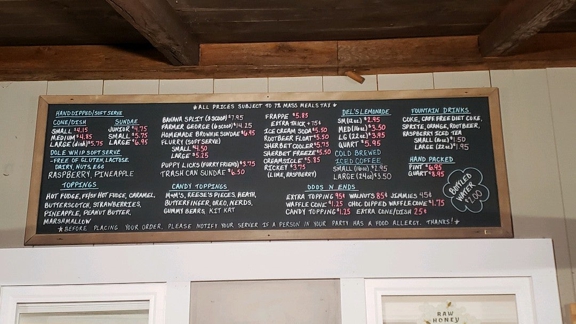 *ALL PRICES SUBJECT TO 7% MASS MEALS TAX*
HAND DIPPED/SOFT SERVE
CONE/DISH
SMALL $4.15
MEDIUM $4.85
LARGE (dish) $5.75
SUNDAE
JUNIOR $4.75
SMALL $5.75
LARGE $6.95
DOLE WHIP SOFT SERVE
-FREE OF GLUTEN, LACTOSE,
DAIRY, NUTS, EGG
RASPBERRY, PINEAPPLE
TOPPINGS
HOT FUDGE, HOT FUDGE, CARAMEL,
BUTTERSCOTCH, STRAWBERRIES,
PINEAPPLE, PEANUT BUTTER,
MARSHMALLOW
BANANA SPLIT (3 SCOOP) $7.95
FARMER GEORGE (6 SCOOP) $14.25
HOMEMADE BROWNIE SUNDAE $6.95
FLURRY (SOFT SERVE)
SMALL $4.50
LARGE $5.25
PUPPY LICKS (FURRY FRIEND) $3.75
TRASH CAN SUNDAE $6.50
CANDY TOPPINGS
M&M'S, REESE'S PIECES, HEATH,
BUTTERFINGER, OREO, NERDS,
GUMMY BEARS, KIT KAT
FRAPPE $5.85
EXTRA THICK +75¢
ICE CREAM SODA $5.50
ROOTBEER FLOAT $5.50
SHERBET COOLER $5.75
SHERBET FREEZE $5.50
CREAMSICLE $5.85
RICKEY $3.75
(LIME, RASPBERRY)
DEL'S LEMONADE
SM (12oz) $2.95
MED (16oz) $3.50
LG (22oz) $3.95
QUART $5.95
COLD BREWED
ICED COFFEE
SMALL (16oz) $2.95
LARGE (24oz) $3.50
ODDS N ENDS
EXTRA TOPPING 95¢ WALNUTS 85¢ JIMMIES 45¢
WAFFLE CONE $1.25 CHOC DIPPED WAFFLE CONE $1.75
CANDY TOPPING $1.25 EXTRA CONE/DISH 25¢
FOUNTAIN DRINKS
COKE, CAFE FREE DIET COKE,
SPRITE, ORANGE, ROOTBEER,
RASPBERRY ICED TEA
SMALL (12oz) $1.50
LARGE (22oz) $1.95
HAND PACKED
PINT $6.95
QUART $8.95
BOTTLED
WATER
$1.00
*BEFORE PLACING YOUR ORDER, PLEASE NOTIFY YOUR SERVER IF A PERSON IN YOUR PARTY HAS A FOOD ALLERGY. THANKS!*
RAW
HONEY